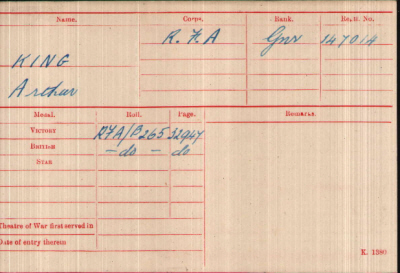 Name. Corps. Rank. Regtl. No.
R. F. A Gnr 147014
KING
Arthur
Medal. Roll. Page. Remarks.
VICTORY RFA/B265 32947
BRITISH - do - do
STAR
Theatre of War first served in
Date of entry therein
K. 1380